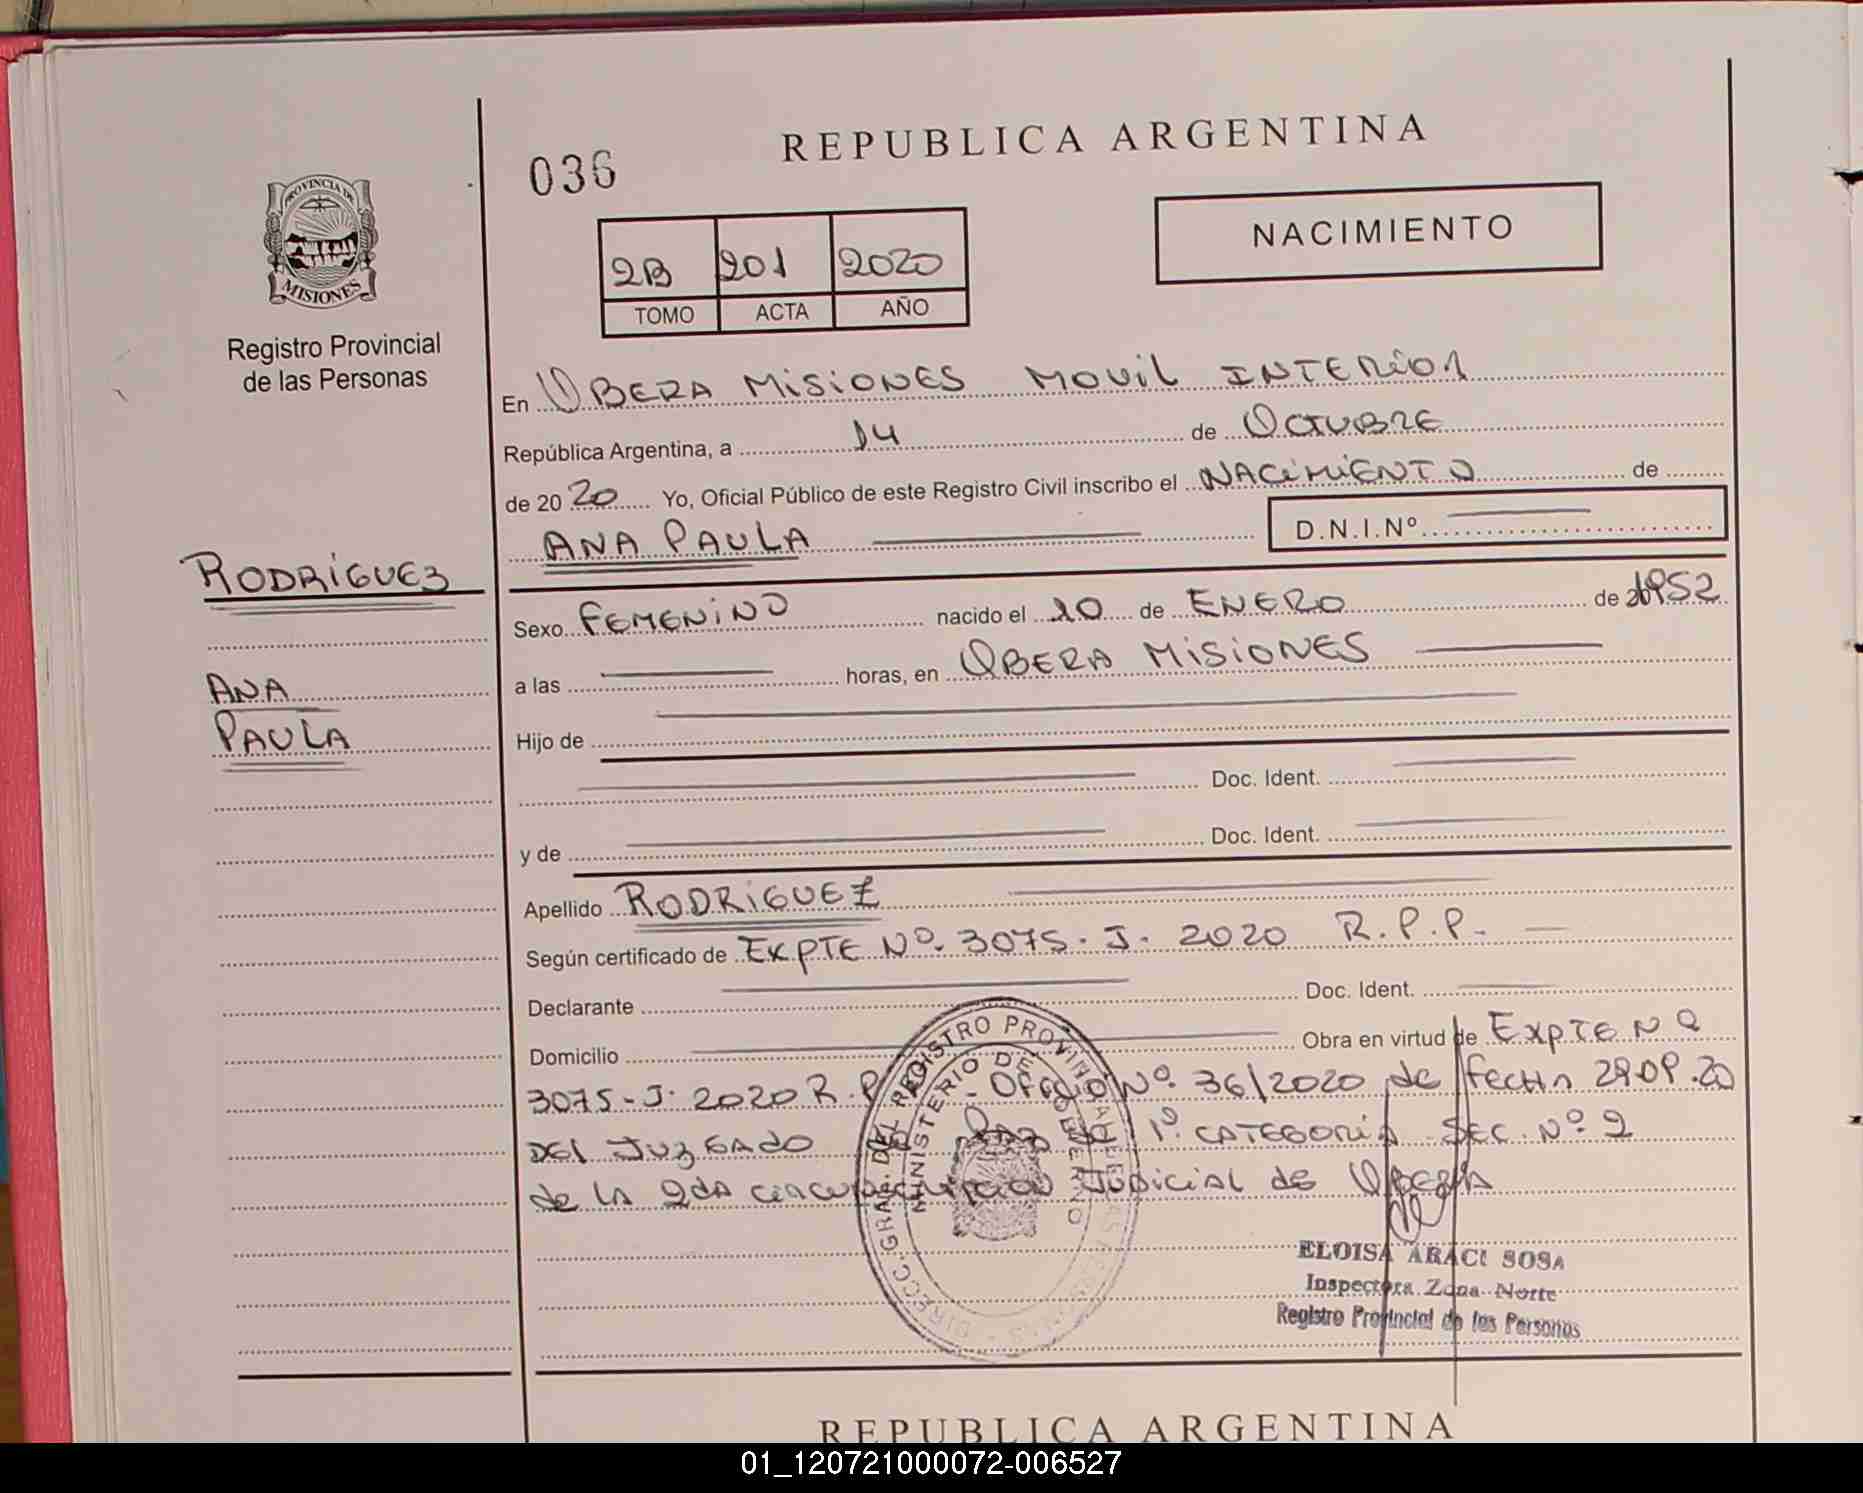 036
REPUBLICA ARGENTINA
PROVINCIA DE
MISIONES
Registro Provincial
de las Personas
2B 201 2020
TOMO ACTA AÑO
NACIMIENTO
En OBERA MISIONES MOVIL INTERIOR
República Argentina, a 14 de OCTUBRE
de 2020 Yo, Oficial Público de este Registro Civil inscribo el NACIMIENTO de
ANA PAULA D.N.I.Nº
RODRIGUEZ
ANA
PAULA
Sexo FEMENINO nacido el 10 de ENERO de 1952
a las horas, en OBERA MISIONES
Hijo de
Doc. Ident.
y de Doc. Ident.
Apellido RODRIGUEZ
Según certificado de EXPTE Nº 3075-J-2020 R.P.P.
Declarante Doc. Ident.
Domicilio Obra en virtud de EXPTE Nº
3075-J-2020 R.P. - OFICIO Nº 36/2020 de fecha 29.09.20
DEL JUZGADO DE PAZ DE 1º CATEGORIA SEC. Nº 2
de LA 2da CIRCUNSCRIPCION JUDICIAL de OBERA
DIRECC. GRAL. DEL REGISTRO PROVINCIAL DE LAS PERSONAS
MINISTERIO DE GOBIERNO
ELOISA ARACI SOSA
Inspectora Zona Norte
Registro Provincial de las Personas
REPUBLICA ARGENTINA
01_120721000072-006527